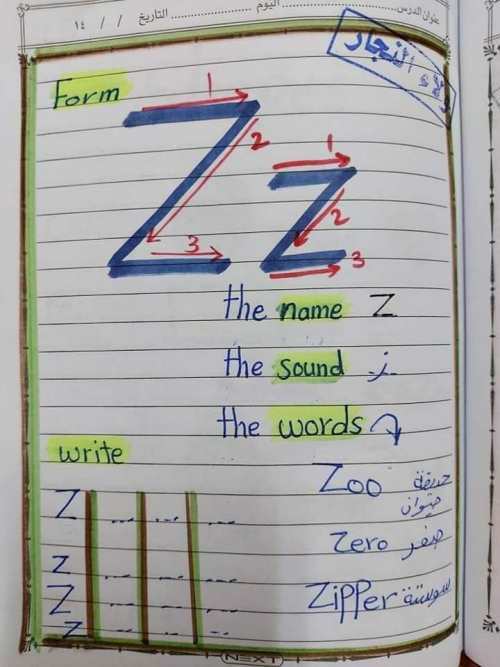 عنوان الدرس اليوم التاريخ / / ١٤
ولاء النجار
Form
1
2
3
Z
1
2
3
z
the name Z
the sound ز
the words
write
Zoo حديقة
حيوان
Zero صفر
Zipper سوستة
Z
z
Z
z
NEXT